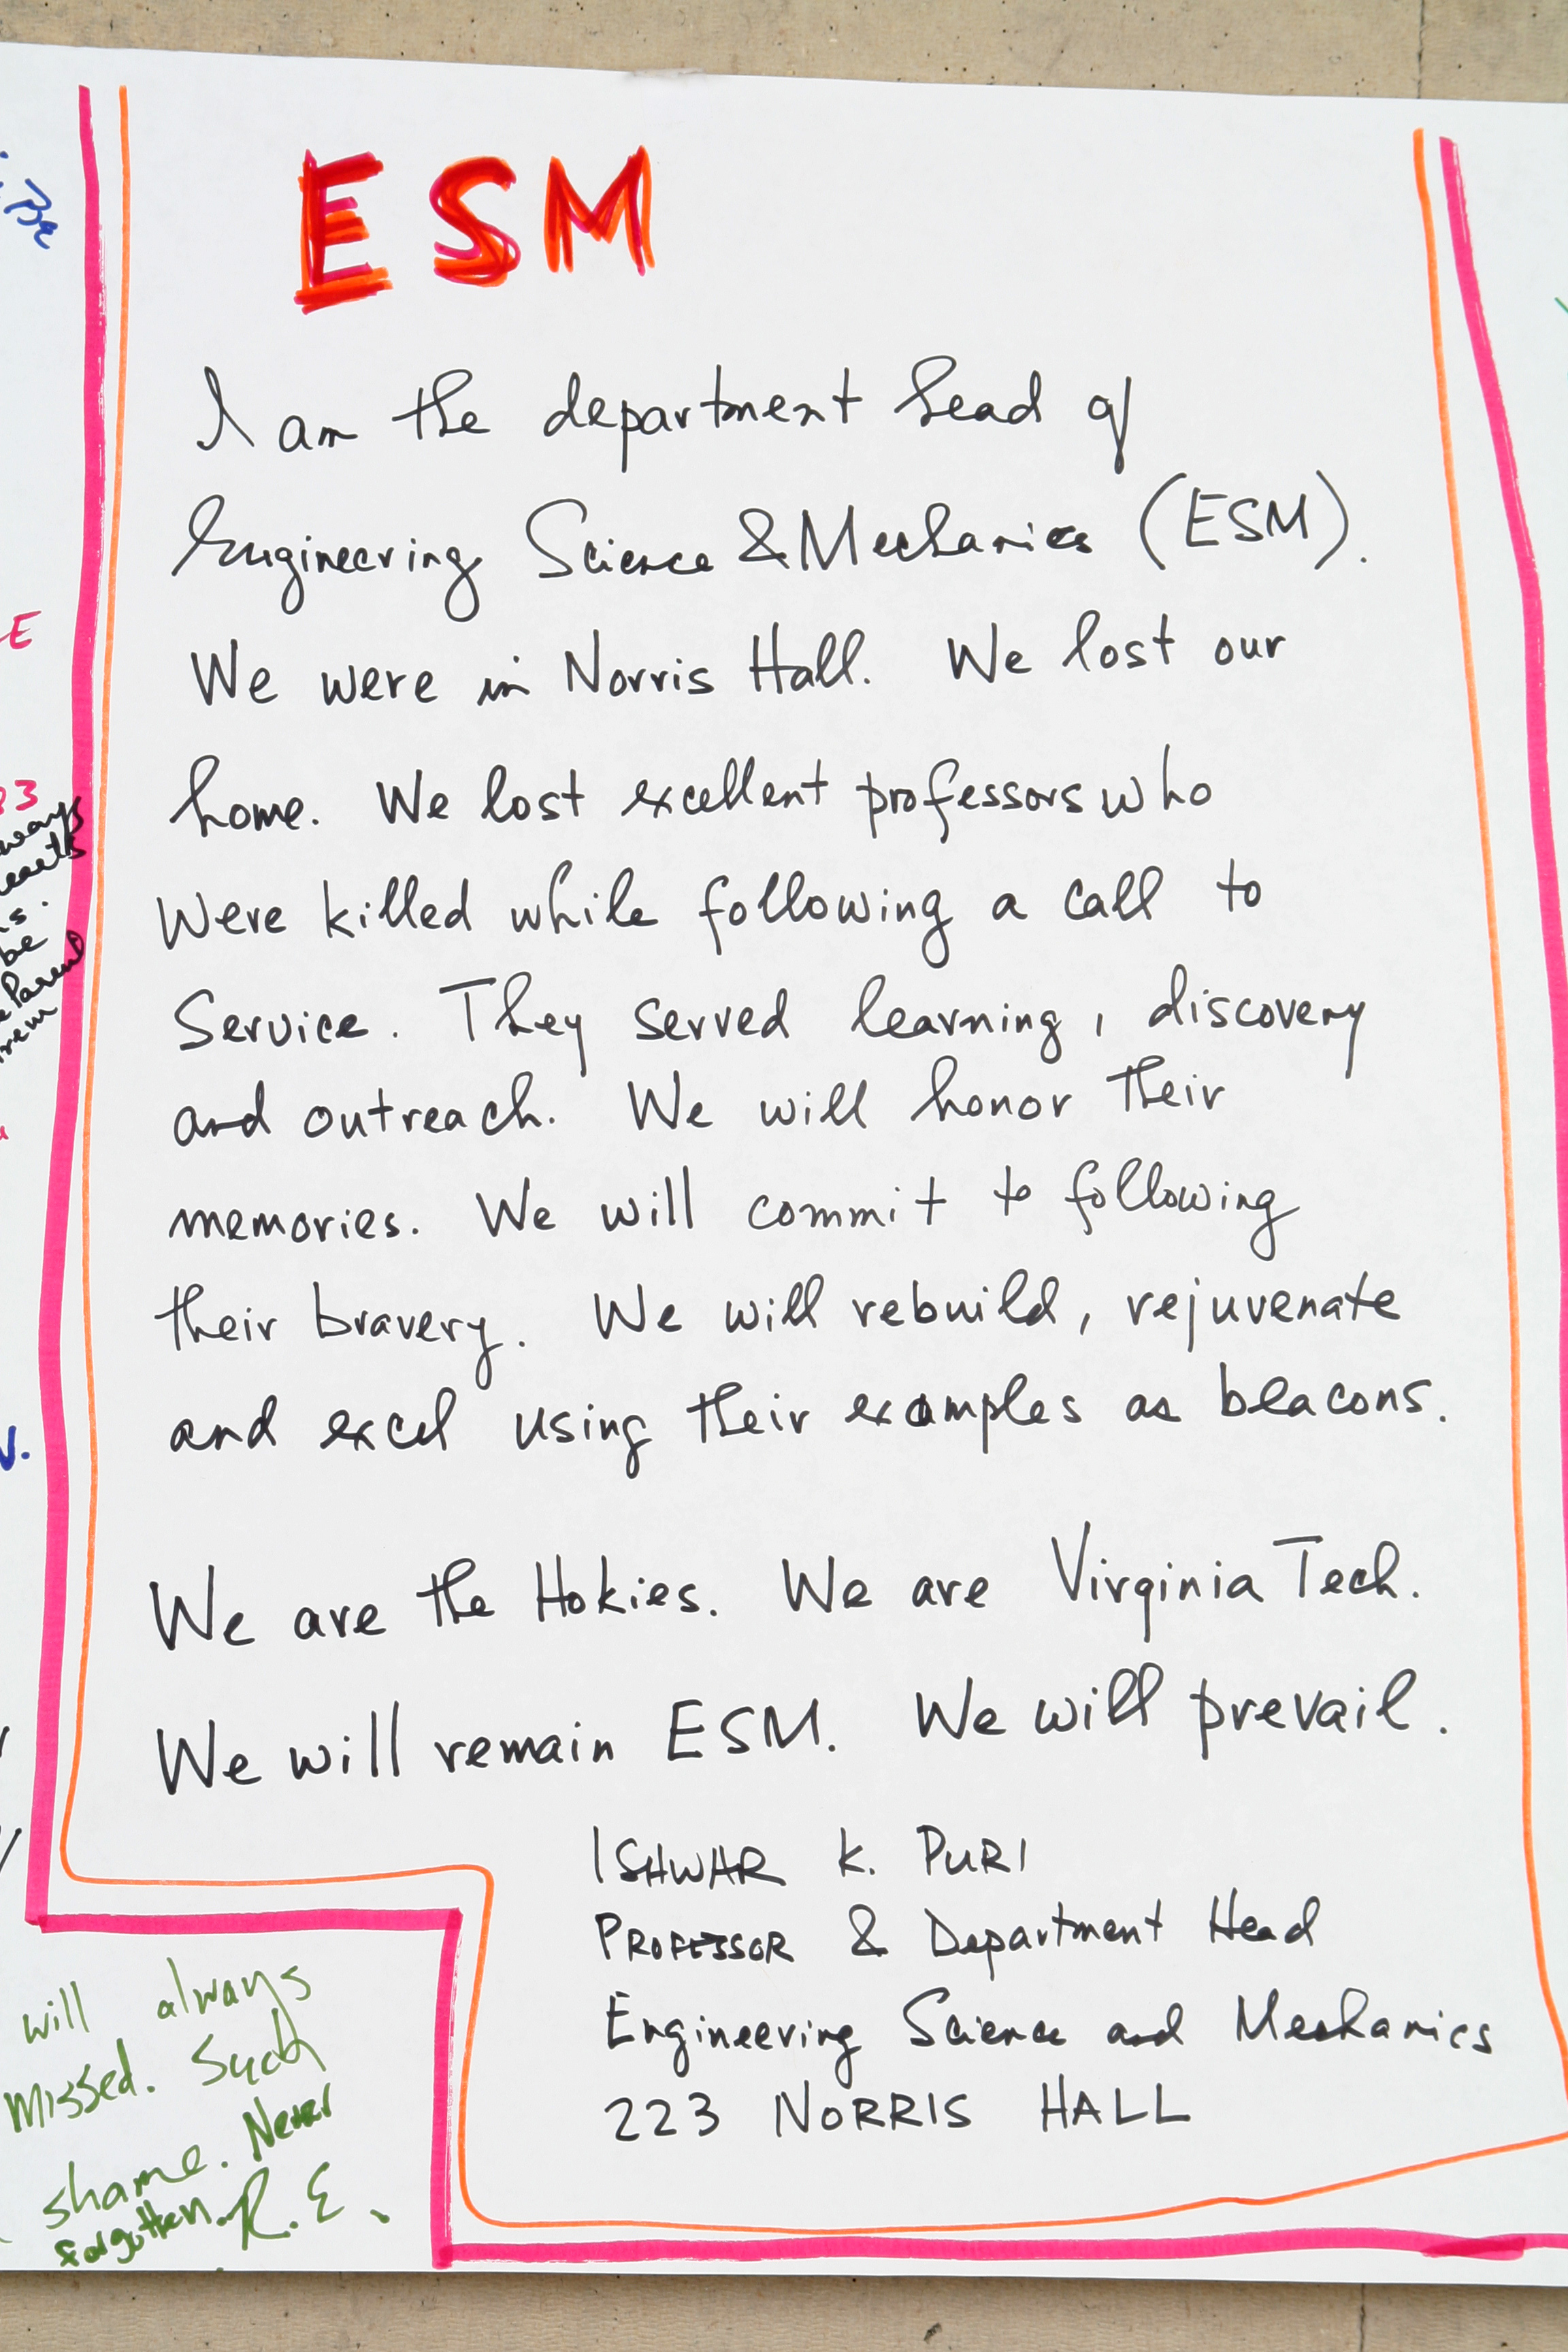 ESM
I am the department head of
Engineering Science & Mechanics (ESM).
We were in Norris Hall. We lost our
home. We lost excellent professors who
were killed while following a call to
Service. They served learning, discovery
and outreach. We will honor their
memories. We will commit to following
their bravery. We will rebuild, rejuvenate
and excel using their examples as beacons.
We are the Hokies. We are Virginia Tech.
We will remain ESM. We will prevail.
ISHWAR K. PURI
PROFESSOR & Department Head
Engineering Science and Mechanics
223 NORRIS HALL
will always
missed. Such
shame. Never
forgotten. R.E.